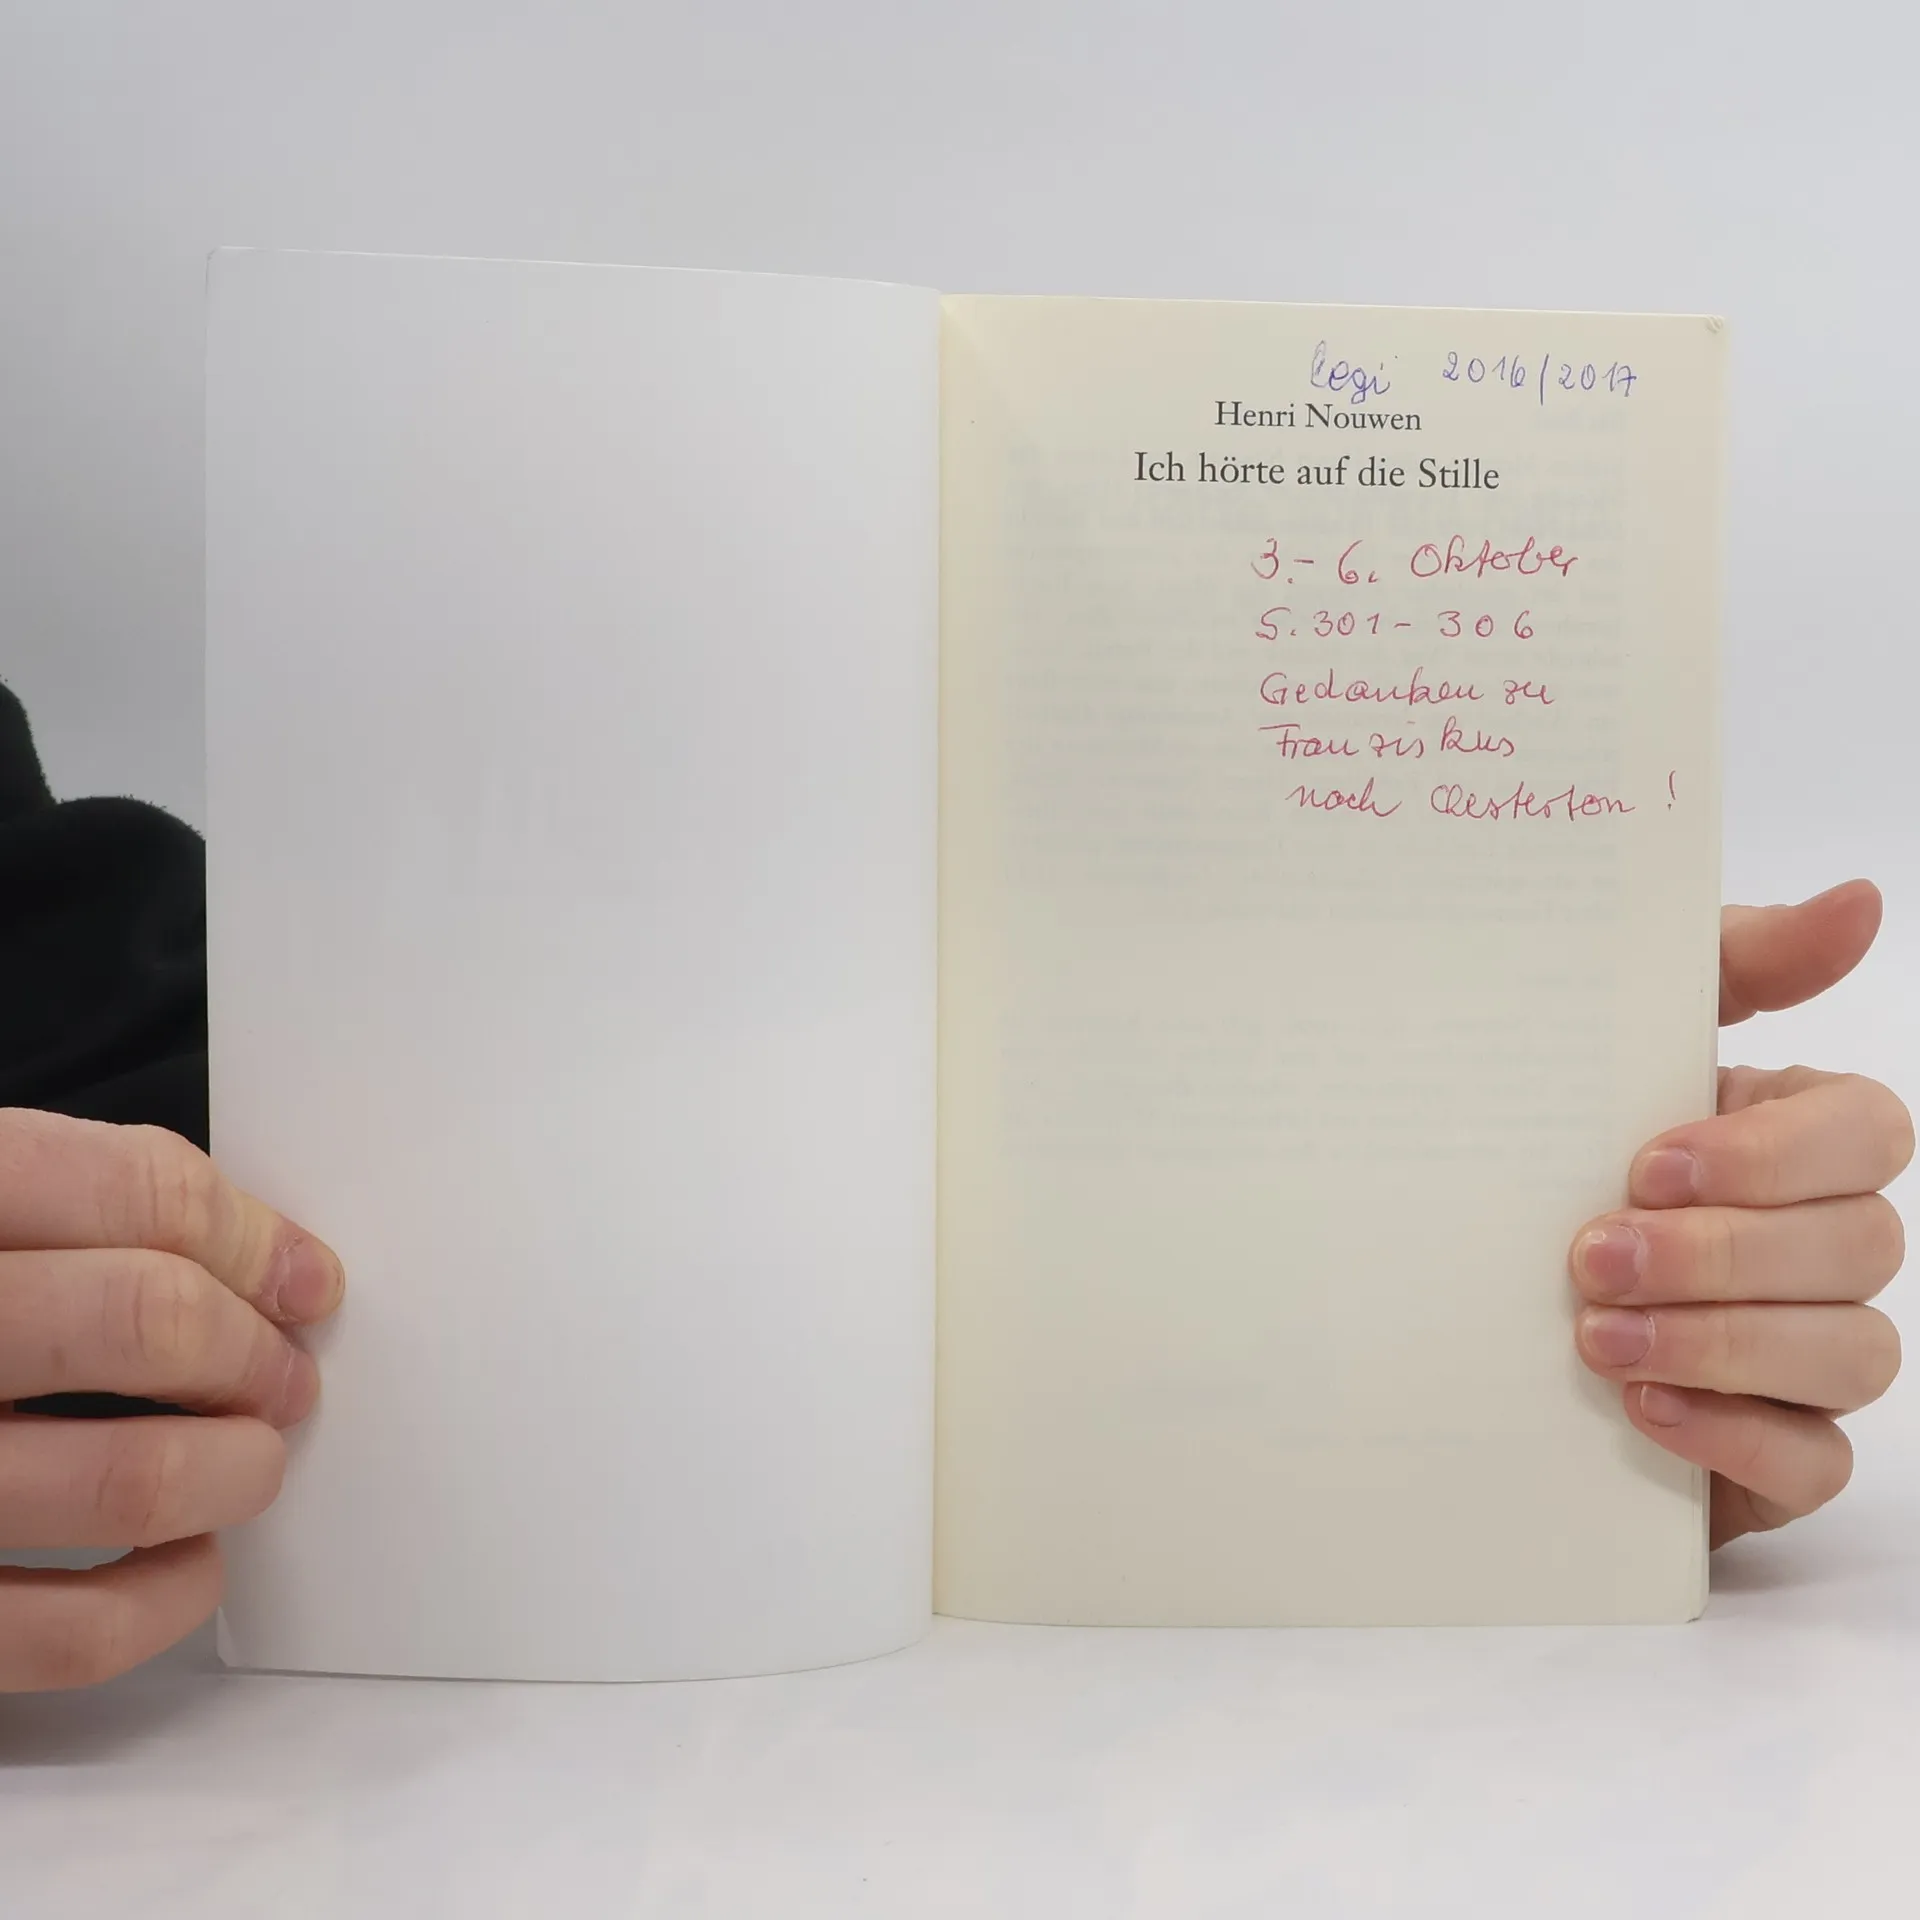 legi 2016/2017
Henri Nouwen
Ich hörte auf die Stille
3.- 6. Oktober
S. 301 - 306
Gedanken zu
Franziskus
nach Chesterton !